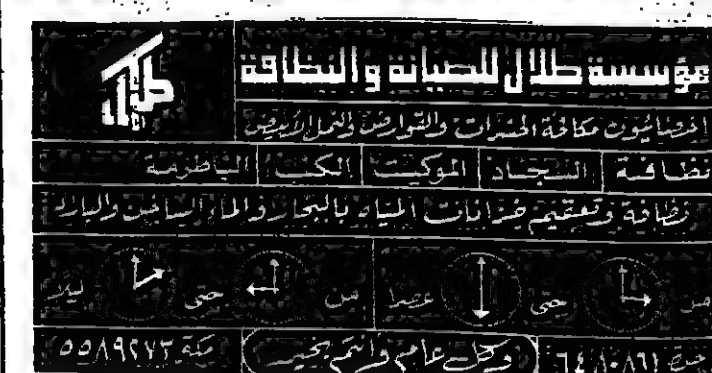 مؤسسة طلال للصيانة والنظافة
طلال
اخصائيون مكافحة الحشرات والقوارض والنمل الأبيض
نظافة السجاد الموكيت الكنب الباطرمة
نظافة وتعقيم خزانات المياه بالبخار والماء الساخن والبارد
من حتى عصرا من حتى ليلا
جدة ٦٤٨٠٨٩١ وكل عام وأنتم بخير مكة ٥٥٨٩٢٧٣